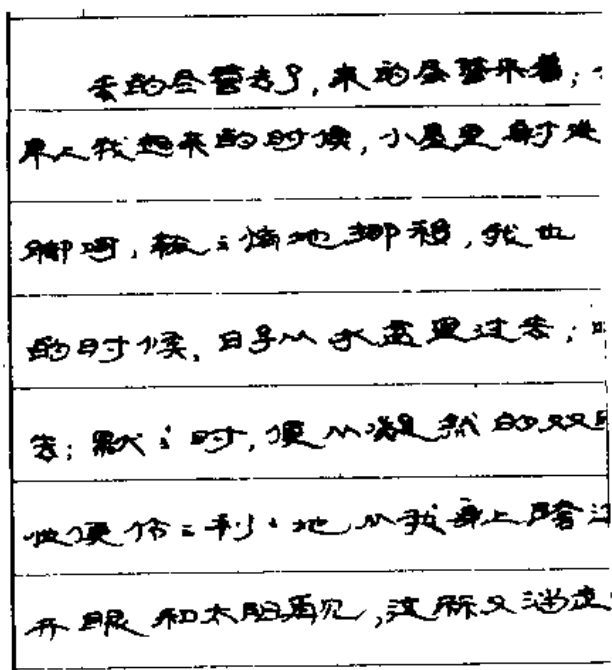 去的尽管去了,来的尽管来着;
早上我起来的时候,小屋里射进
脚啊,轻轻悄悄地挪移,我也
的时候,日子从水盆里过去;
去;默默时,便从凝然的双眼
他便伶伶利利地从我身上跨过
开眼和太阳再见,这算又溜走